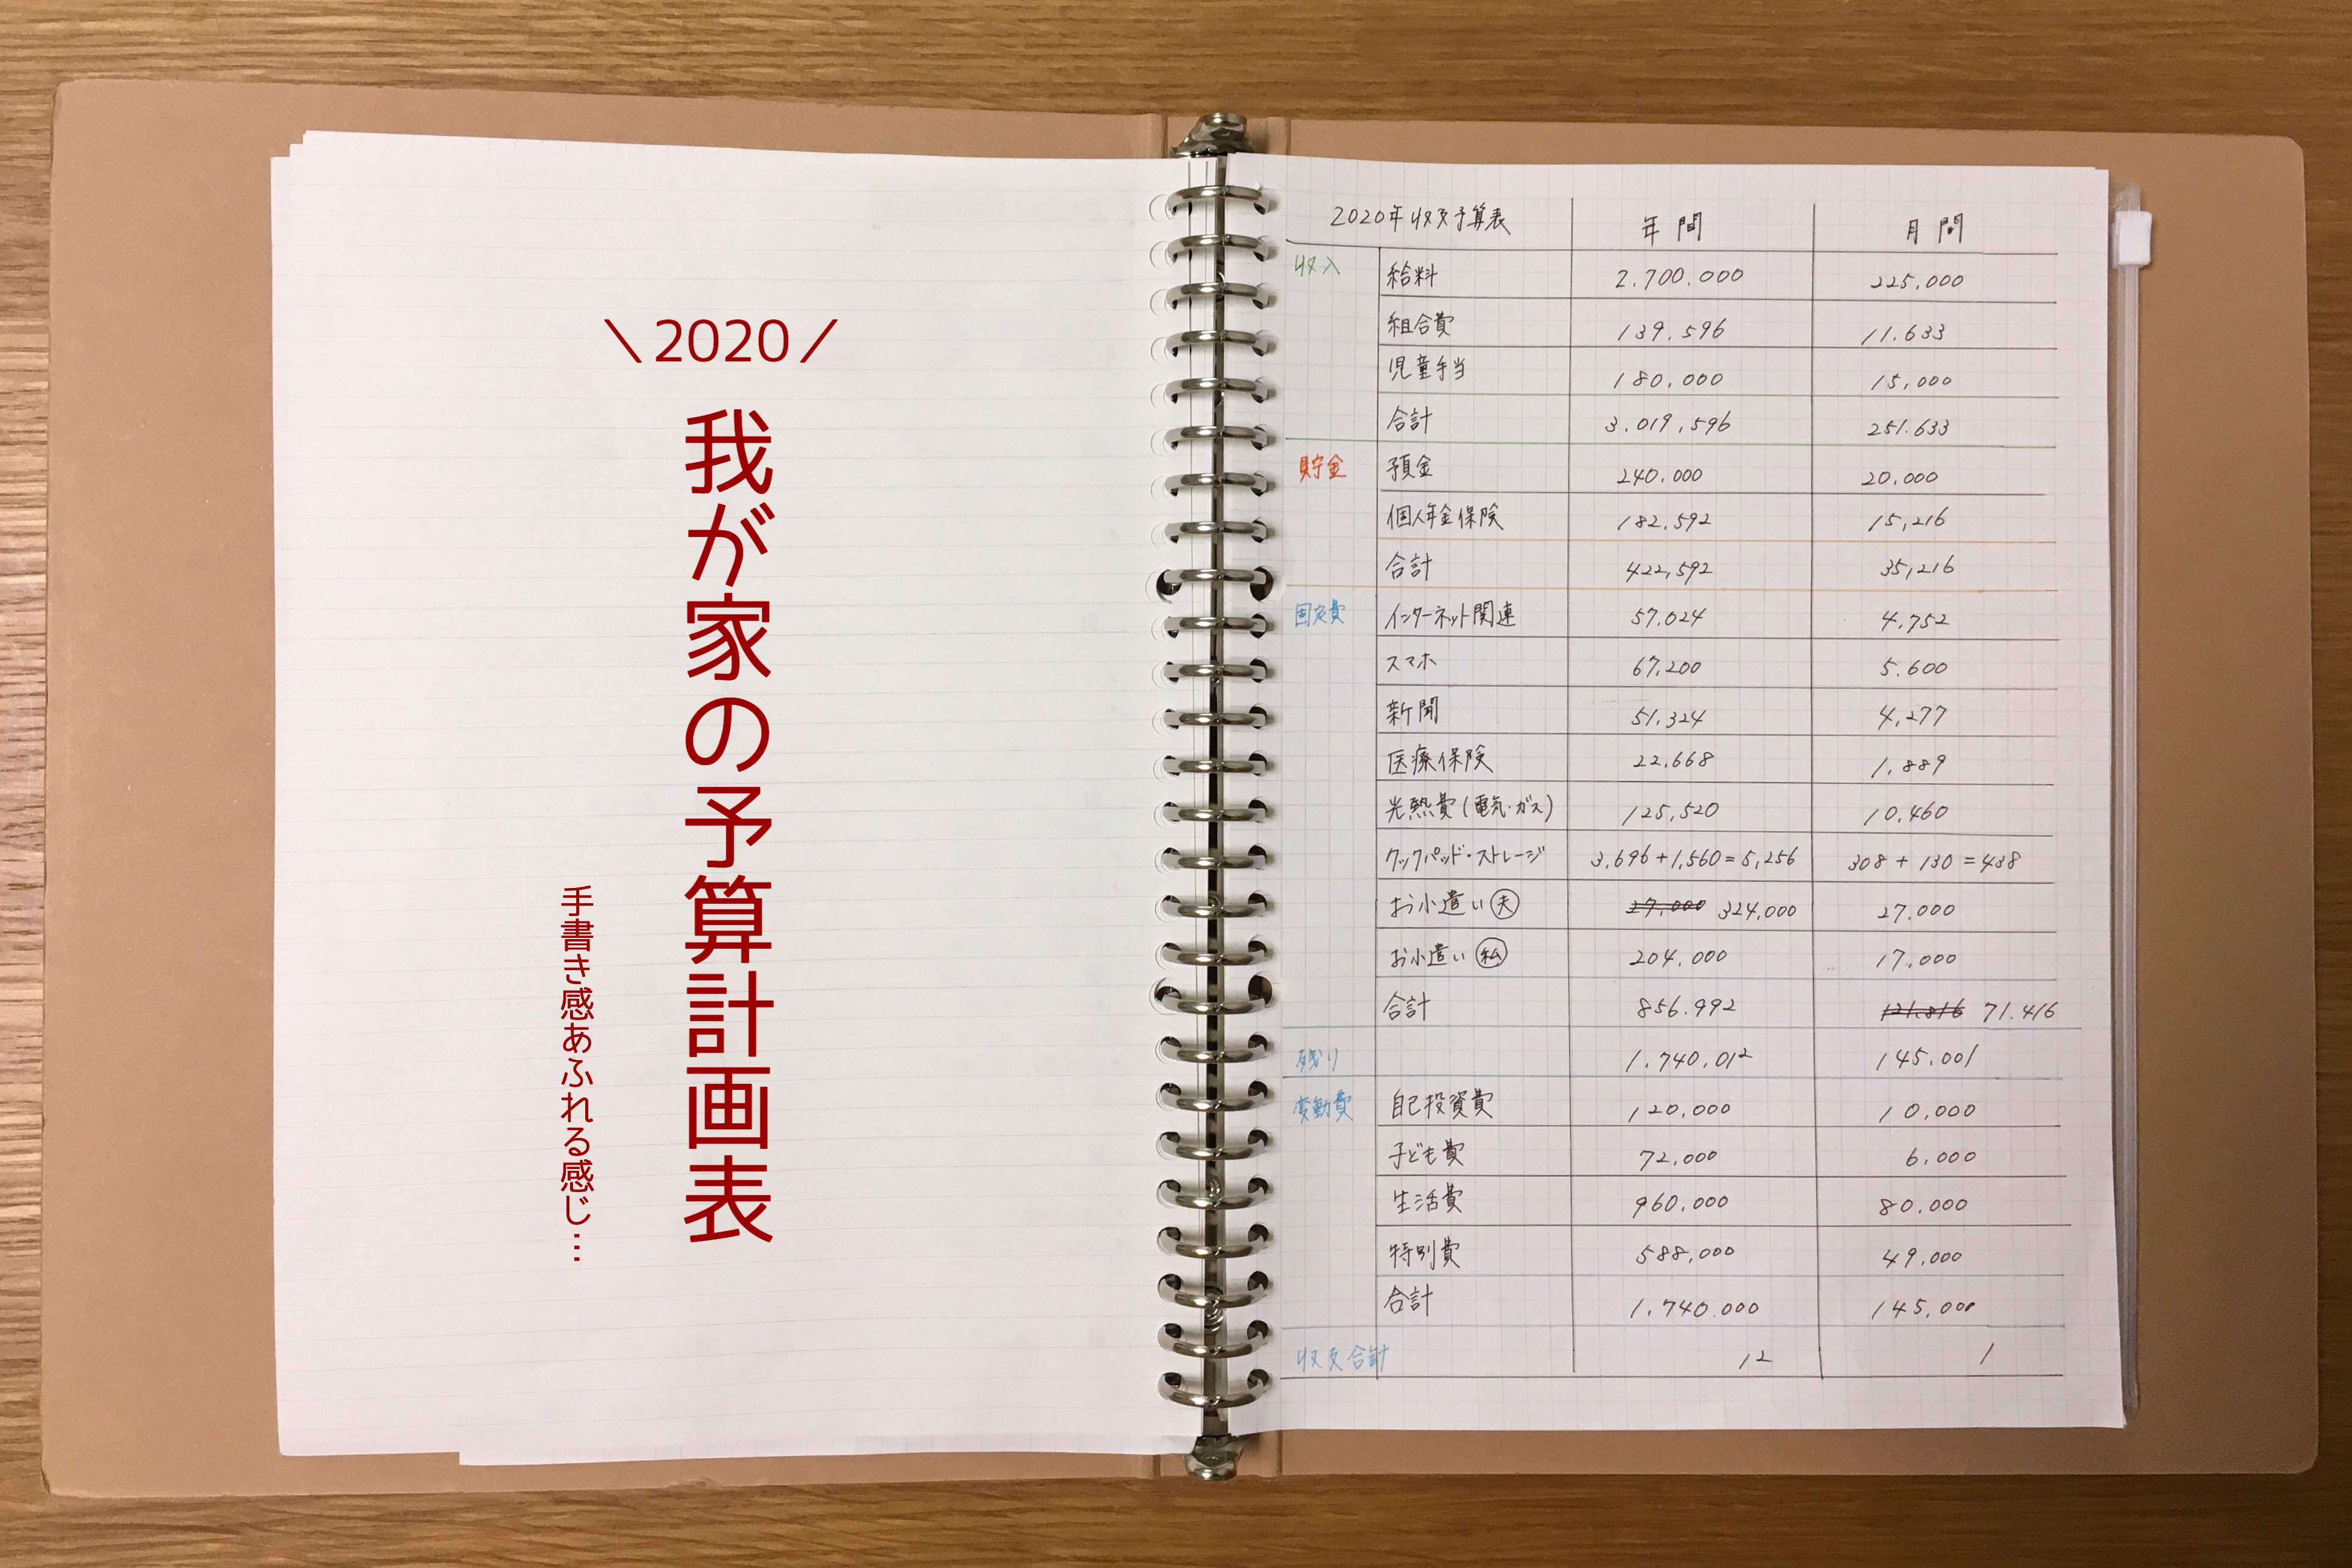 ＼2020／
我が家の予算計画表
手書き感あふれる感じ…
2020年収支予算表 年間 月間
収入 給料 2.700.000 225.000
組合費 139.596 11.633
児童手当 180.000 15,000
合計 3.019,596 251.633
貯金 預金 240.000 20.000
個人年金保険 182.592 15,216
合計 422,592 35,216
固定費 インターネット関連 57.024 4,752
スマホ 67,200 5.600
新聞 51.324 4,277
医療保険 22.668 1.889
光熱費(電気・ガス) 125,520 10.460
クックパッド・ストレージ 3,696+1,560=5,256 308+130=438
お小遣い夫 27,000 324,000 27.000
お小遣い私 204.000 17.000
合計 856.992 121.816 71.416
残り 1.740.012 145.001
変動費 自己投資費 120,000 10,000
子ども費 72,000 6.000
生活費 960.000 80.000
特別費 588,000 49.000
合計 1.740.000 145,000
収支合計 12 1